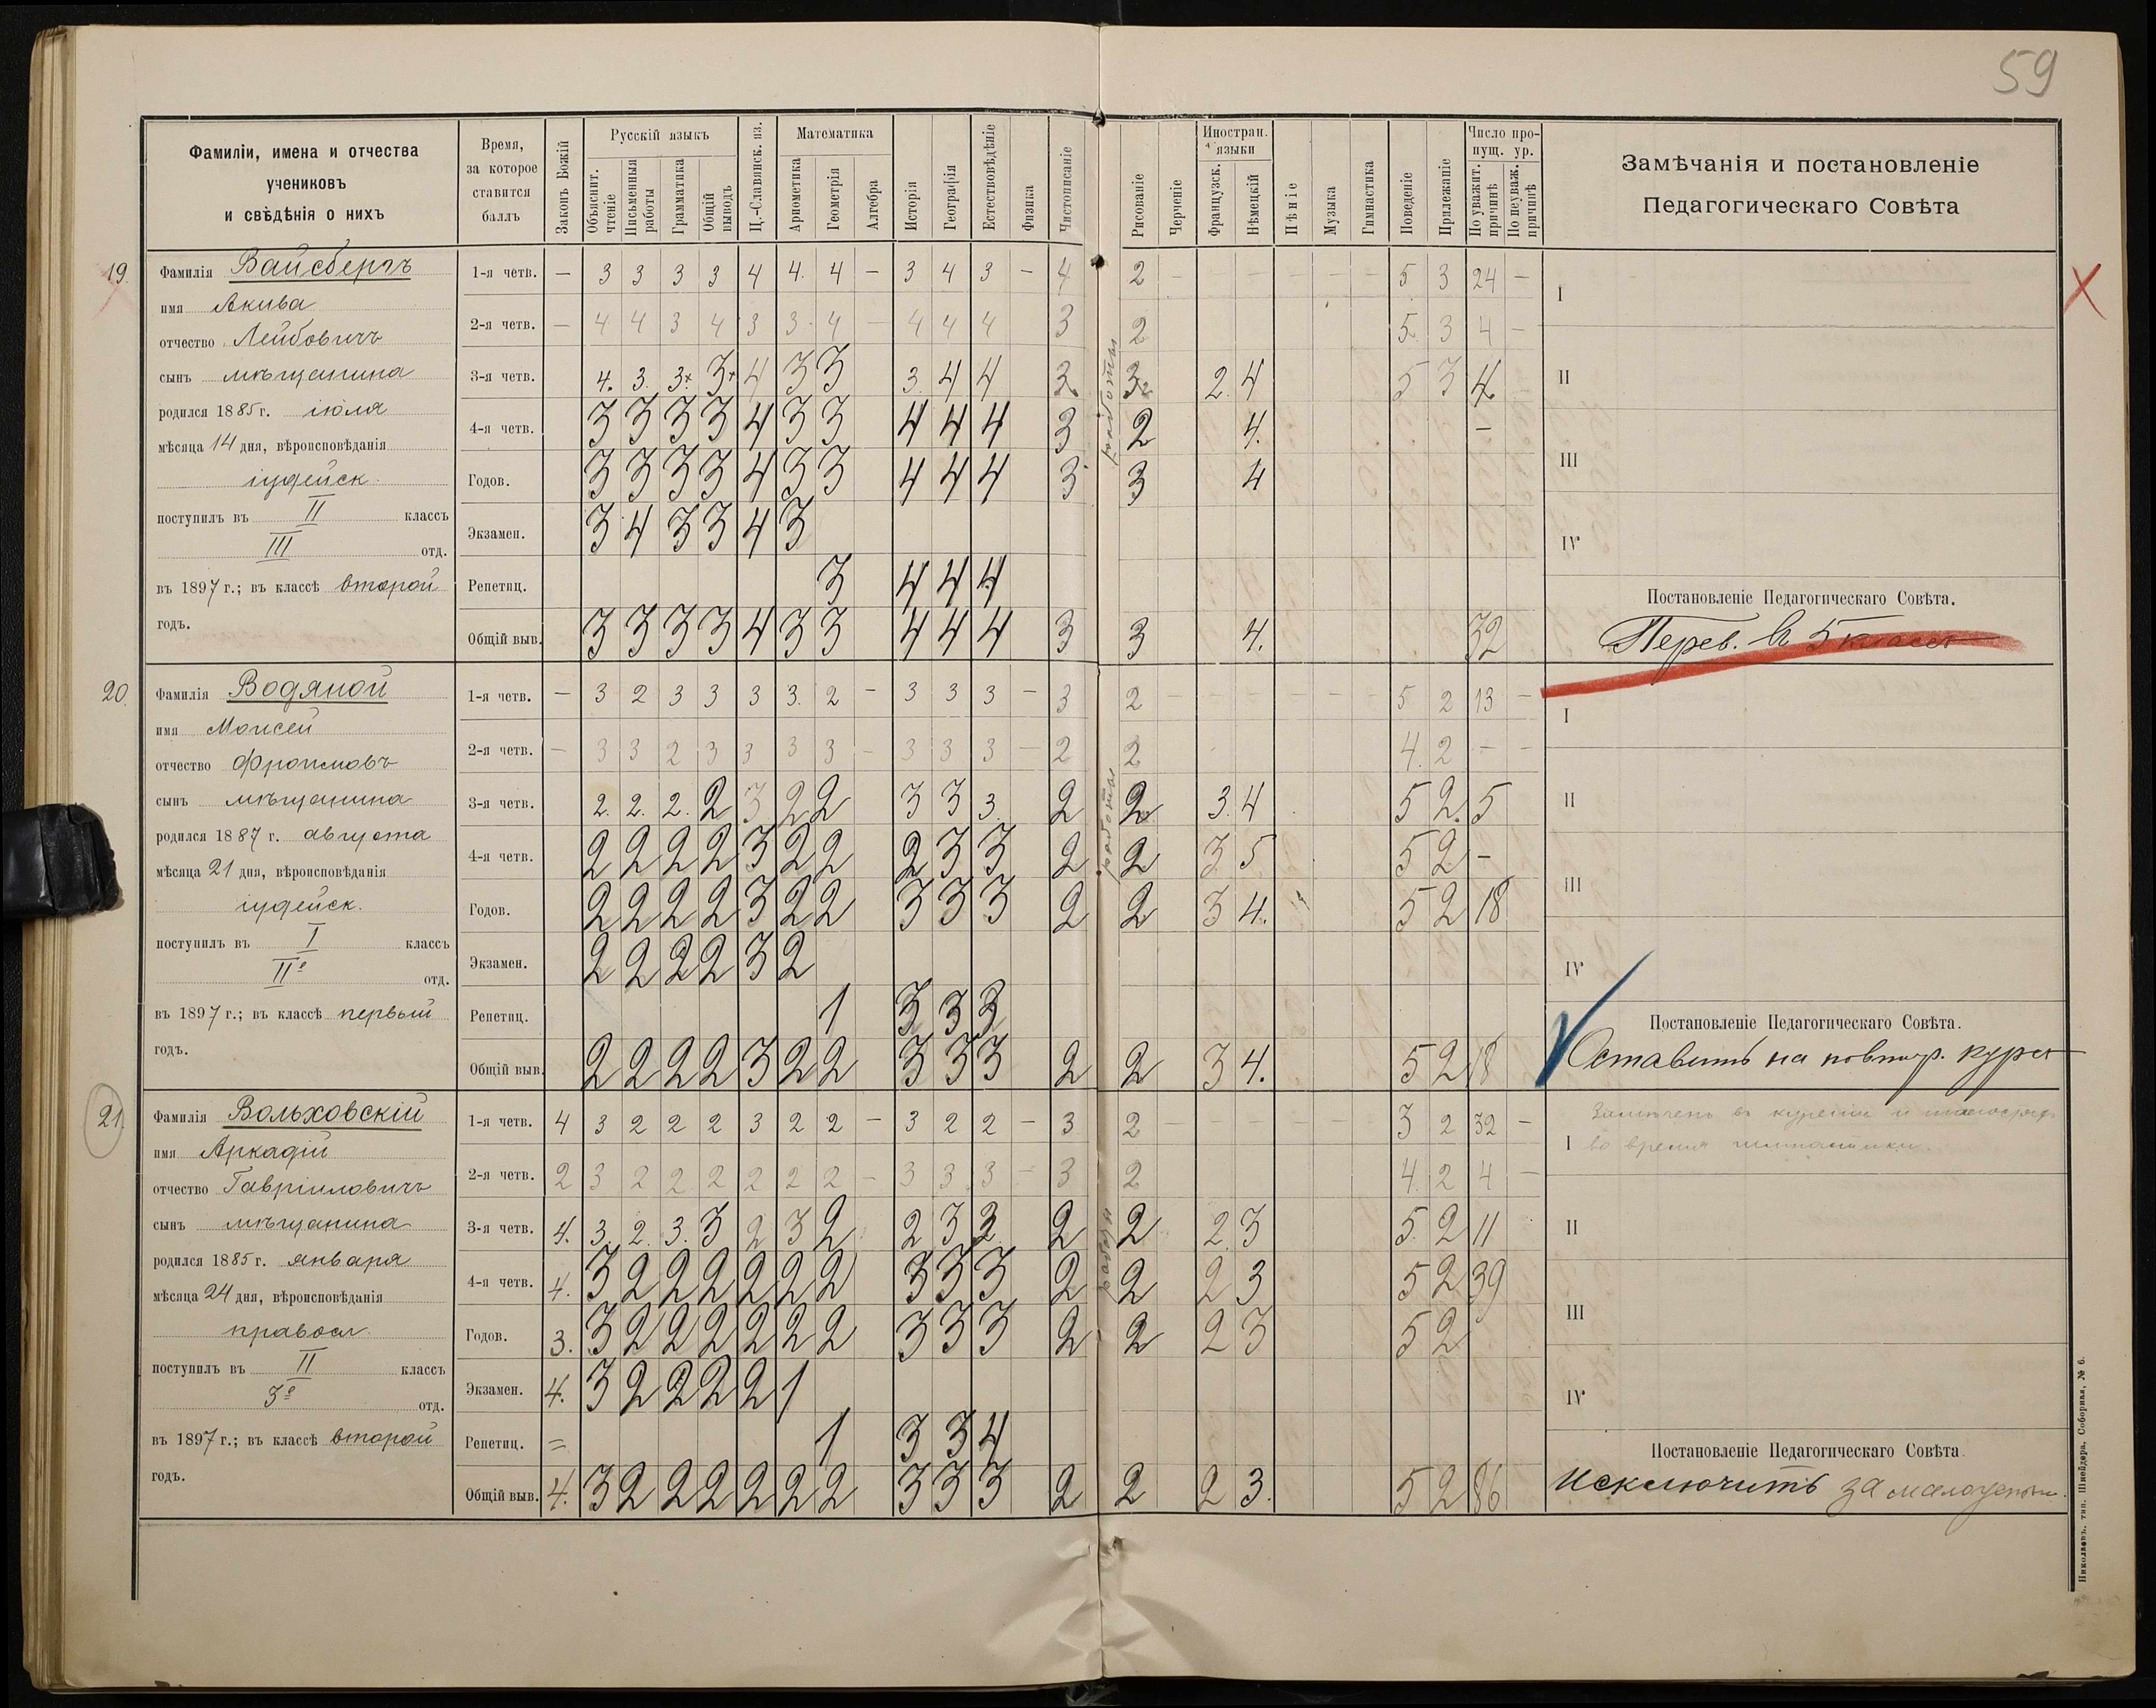 59
Фамиліи, имена и отчества
учениковъ
и свѣдѣнія о нихъ
Время,
за которое
ставится
баллъ
Законъ Божій
Русскій языкъ
Объяснит. чтеніе
Письменныя работы
Грамматика
Общій выводъ
Ц.-Славянск. яз.
Математика
Ариѳметика
Геометрія
Алгебра
Исторія
Географія
Естествовѣдѣніе
Физика
Чистописаніе
Рисованіе
Черченіе
Иностран. языки
Французск.
Нѣмецкій
Пѣніе
Музыка
Гимнастика
Поведеніе
Прилежаніе
Число пропущ. ур.
По уважит. причинѣ
По неуваж. причинѣ
Замѣчанія и постановленіе
Педагогическаго Совѣта
19.
Фамилія Вайсбергъ
имя Акива
отчество Лейбовичъ
сынъ мѣщанина
родился 1885 г. іюля
мѣсяца 14 дня, вѣроисповѣданія
іудейск.
поступилъ въ II классъ
III отд.
въ 1897 г.; въ классѣ второй
годъ.
1-я четв. — 3 3 3 3 4 4. 4 — 3 4 3 — 4 2 — — — — — — 5 3 24 —
2-я четв. — 4 4 3 4 3 3 4 — 4 4 4 3 2 5 3 4 —
3-я четв. 4. 3. 3+ 3+ 4 3 3 3 4 4 3 3 2 4 5 3 4
4-я четв. 3 3 3 3 4 3 3 4 4 4 3 2 4. —
Годов. 3 3 3 3 4 3 3 4 4 4 3 3 4
Экзамен. 3 4 3 3 4 3
Репетиц. 3 4 4 4
Общій выв. 3 3 3 3 4 3 3 4 4 4 3 3 4. 32
I
II
III
IV
Постановленіе Педагогическаго Совѣта.
Перев. в 5 классъ
20.
Фамилія Водяной
имя Моисей
отчество Фроимовъ
сынъ мѣщанина
родился 1887 г. августа
мѣсяца 21 дня, вѣроисповѣданія
іудейск.
поступилъ въ I классъ
IIе отд.
въ 1897 г.; въ классѣ первый
годъ.
1-я четв. — 3 2 3 3 3 3. 2 — 3 3 3 — 3 2 — — — — — — 5 2 13 —
2-я четв. — 3 3 2 3 3 3 3 — 3 3 3 — 2 2 4 2 — —
3-я четв. 2. 2. 2. 2 3 2 2 3 3 3. 2 2 3. 4 5 2. 5
4-я четв. 2 2 2 2 3 2 2 2 3 3 2 2 3 5 5 2 —
Годов. 2 2 2 2 3 2 2 3 3 3 2 2 3 4. 5 2 18
Экзамен. 2 2 2 2 3 2
Репетиц. 1 3 3 3
Общій выв. 2 2 2 2 3 2 2 3 3 3 2 2 3 4. 5 2 18
I
II
III
IV
Постановленіе Педагогическаго Совѣта.
Оставить на повтор. курсъ
21.
Фамилія Вольховскій
имя Аркадій
отчество Гавріиловичъ
сынъ мѣщанина
родился 1885 г. января
мѣсяца 24 дня, вѣроисповѣданія
правосл.
поступилъ въ II классъ
3е отд.
въ 1897 г.; въ классѣ второй
годъ.
1-я четв. 4 3 2 2 2 3 2 2 — 3 2 2 — 3 2 — — — — — — 3 2 32 —
2-я четв. 2 3 2 2 2 2 2 2 — 3 3 3 — 3 2 4 2 4 —
3-я четв. 4. 3. 2. 3. 3 2 3 2 2 3 3 2 2 2. 3 5 2 11
4-я четв. 4. 3 2 2 2 2 2 2 3 3 3 2 2 2 3 5 2 39
Годов. 3. 3 2 2 2 2 2 2 3 3 3 2 2 2 3 5 2
Экзамен. 4. 3 2 2 2 2 1
Репетиц. = 1 3 3 4
Общій выв. 4. 3 2 2 2 2 2 2 3 3 3 2 2 2 3. 5 2 86
Замѣченъ въ куреніи и
I во время гимнастики.
II
III
IV
Постановленіе Педагогическаго Совѣта.
Исключить за малоуспѣш.
Николаевъ. тип. Шнейдера, Соборная, № 6.